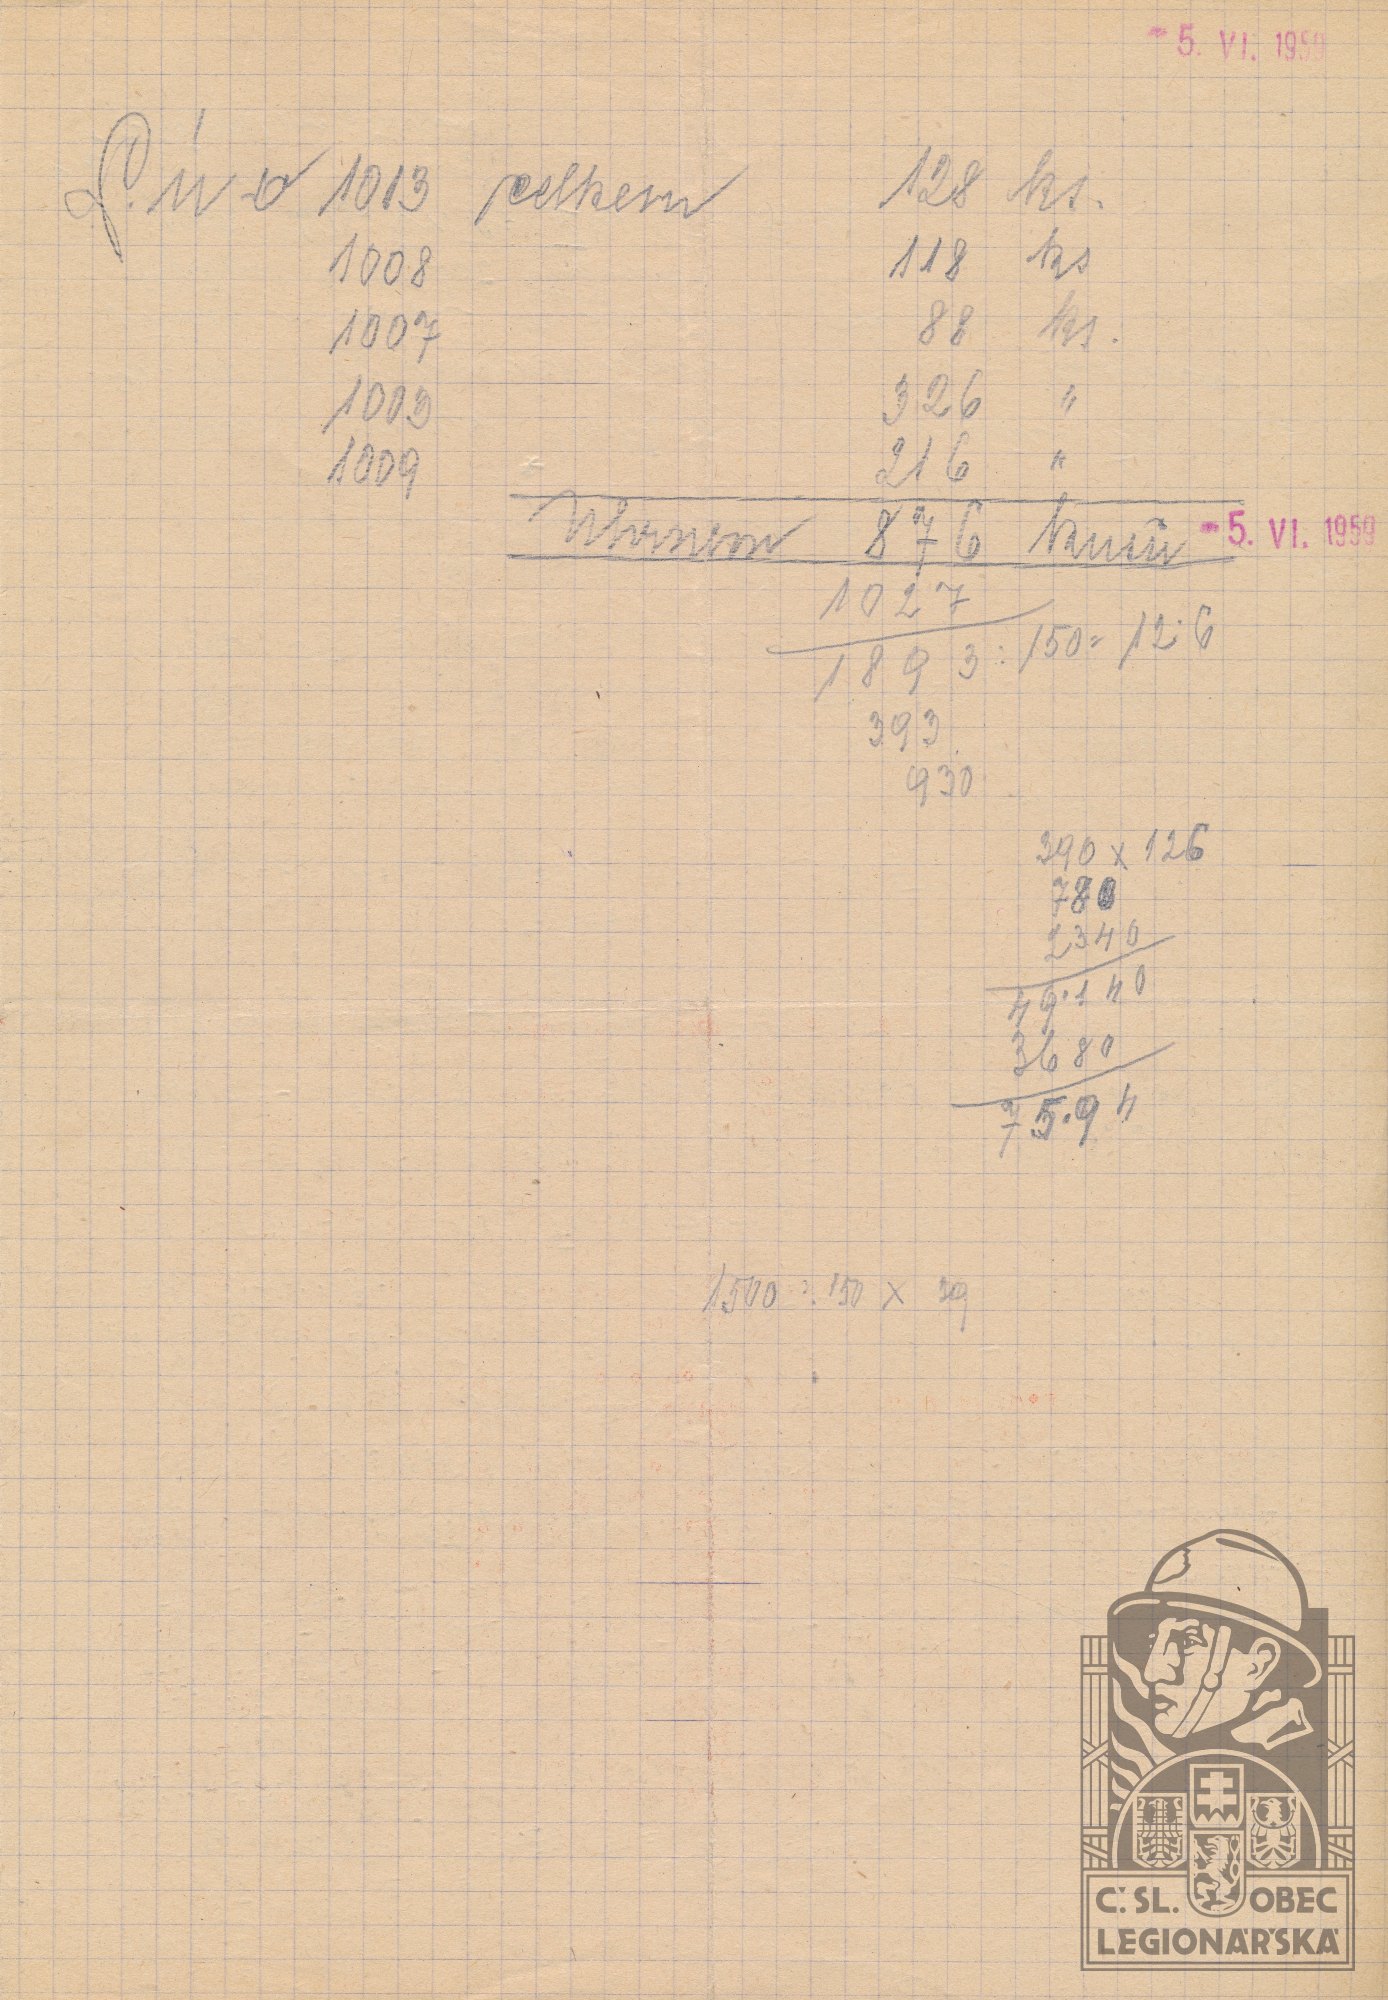 - 5. VI. 1959
P. ú č 1013 celkem 128 ks.
1008 118 ks
1007 88 ks.
1003 326 "
1009 216 "
Úhrnem 876 kusů - 5. VI. 1959
1027
1893 : 150 = 12·6
393
930
390 x 126
780
2340
49·140
3680
75.94
1500 : 150 x 39
Č. SL. OBEC
LEGIONÁŘSKÁ